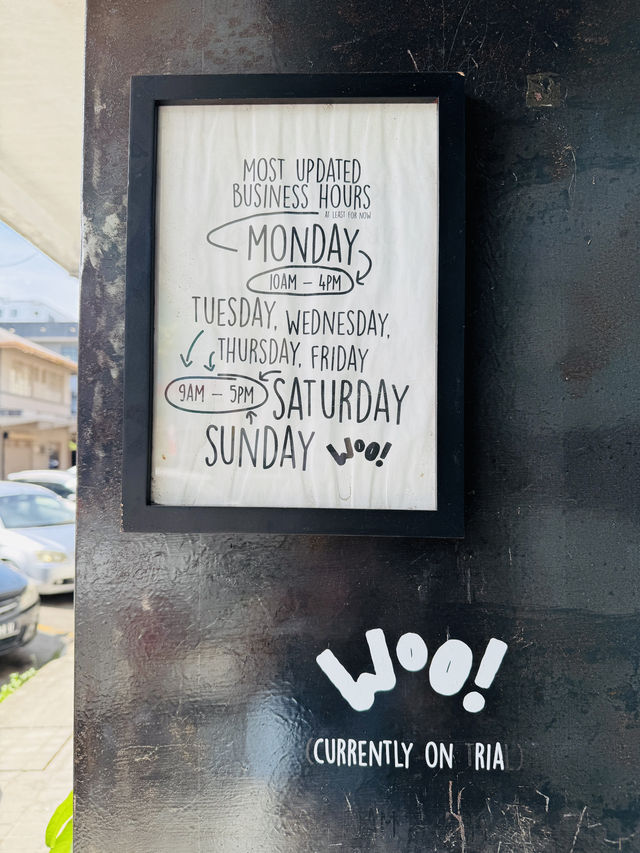 MOST UPDATED
BUSINESS HOURS
AT LEAST FOR NOW
MONDAY
10AM – 4PM
TUESDAY, WEDNESDAY,
THURSDAY, FRIDAY
9AM – 5PM SATURDAY
SUNDAY WOO!
WOO!
CURRENTLY ON TRIA